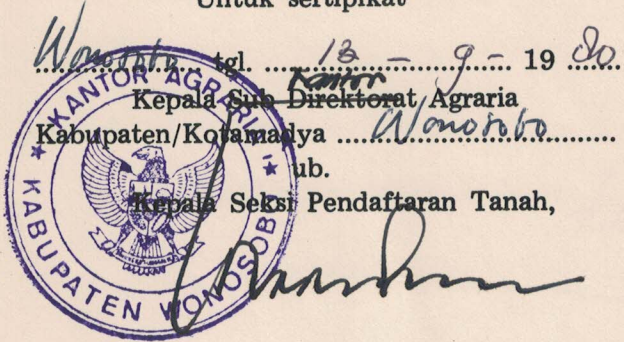 Untuk sertipikat
Wonosobo tgl. 13 - 9 - 19 80
Kantor
Kepala Sub Direktorat Agraria
Kabupaten/Kotamadya Wonosobo
ub.
Kepala Seksi Pendaftaran Tanah,
KANTOR AGRARIA
KABUPATEN WONOSOBO